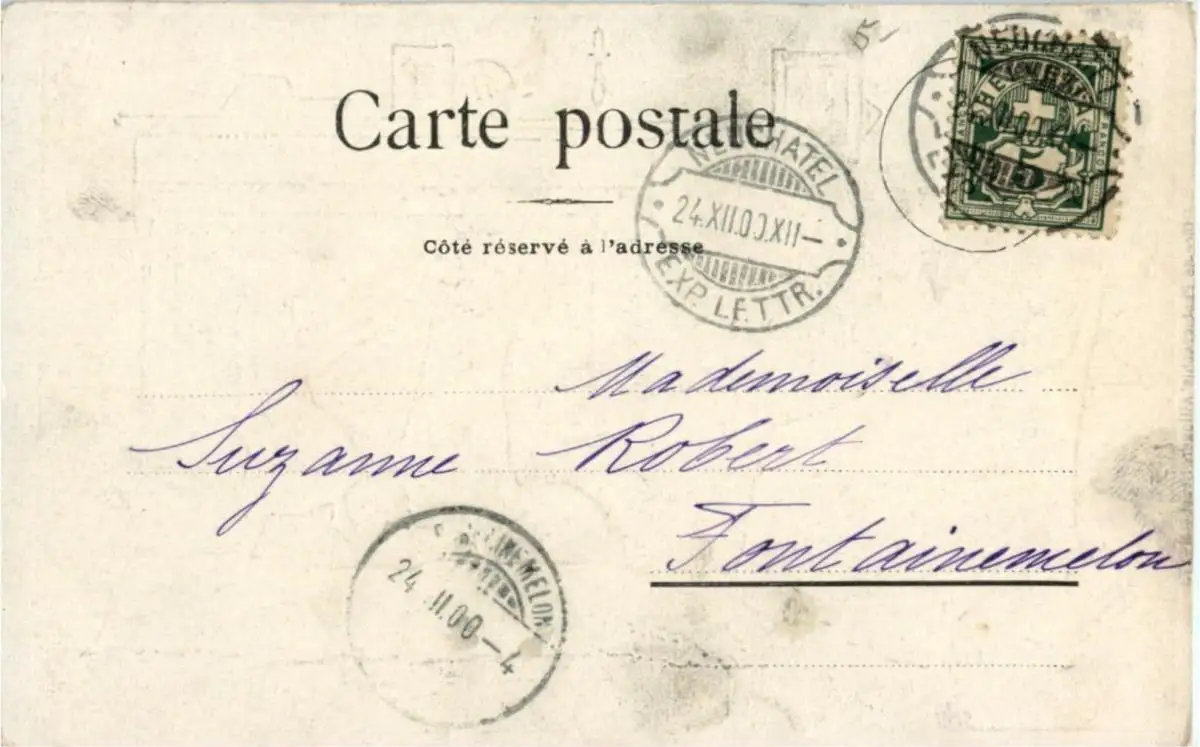 5
Carte postale
Côté réservé à l'adresse
NEUCHATEL
24.XII.00.XII—
EXP. LETTR.
FRANCO
5
Mademoiselle
Suzanne Robert
Fontainemelon
24. II.00–4